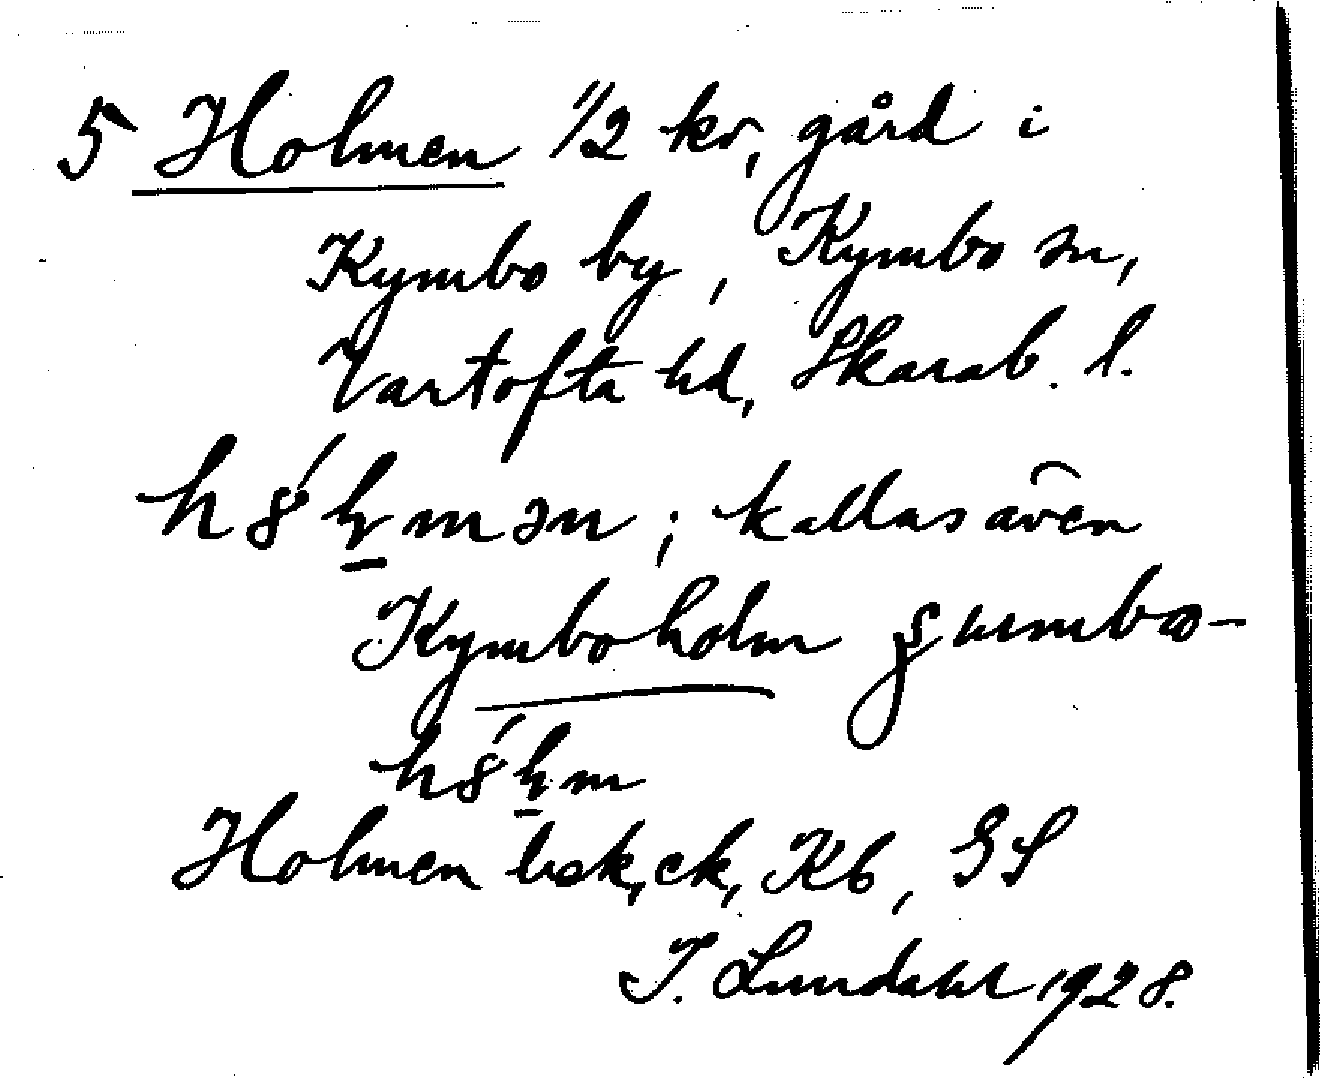 5 Holmen 1/2 kr, gård i
Kymbo by, Kymbo sn,
Vartofta hd, Skarab. l.
kallas även
Kymboholm
Holmen bok, ek, Kb, GS
I. Lundahl 1928.